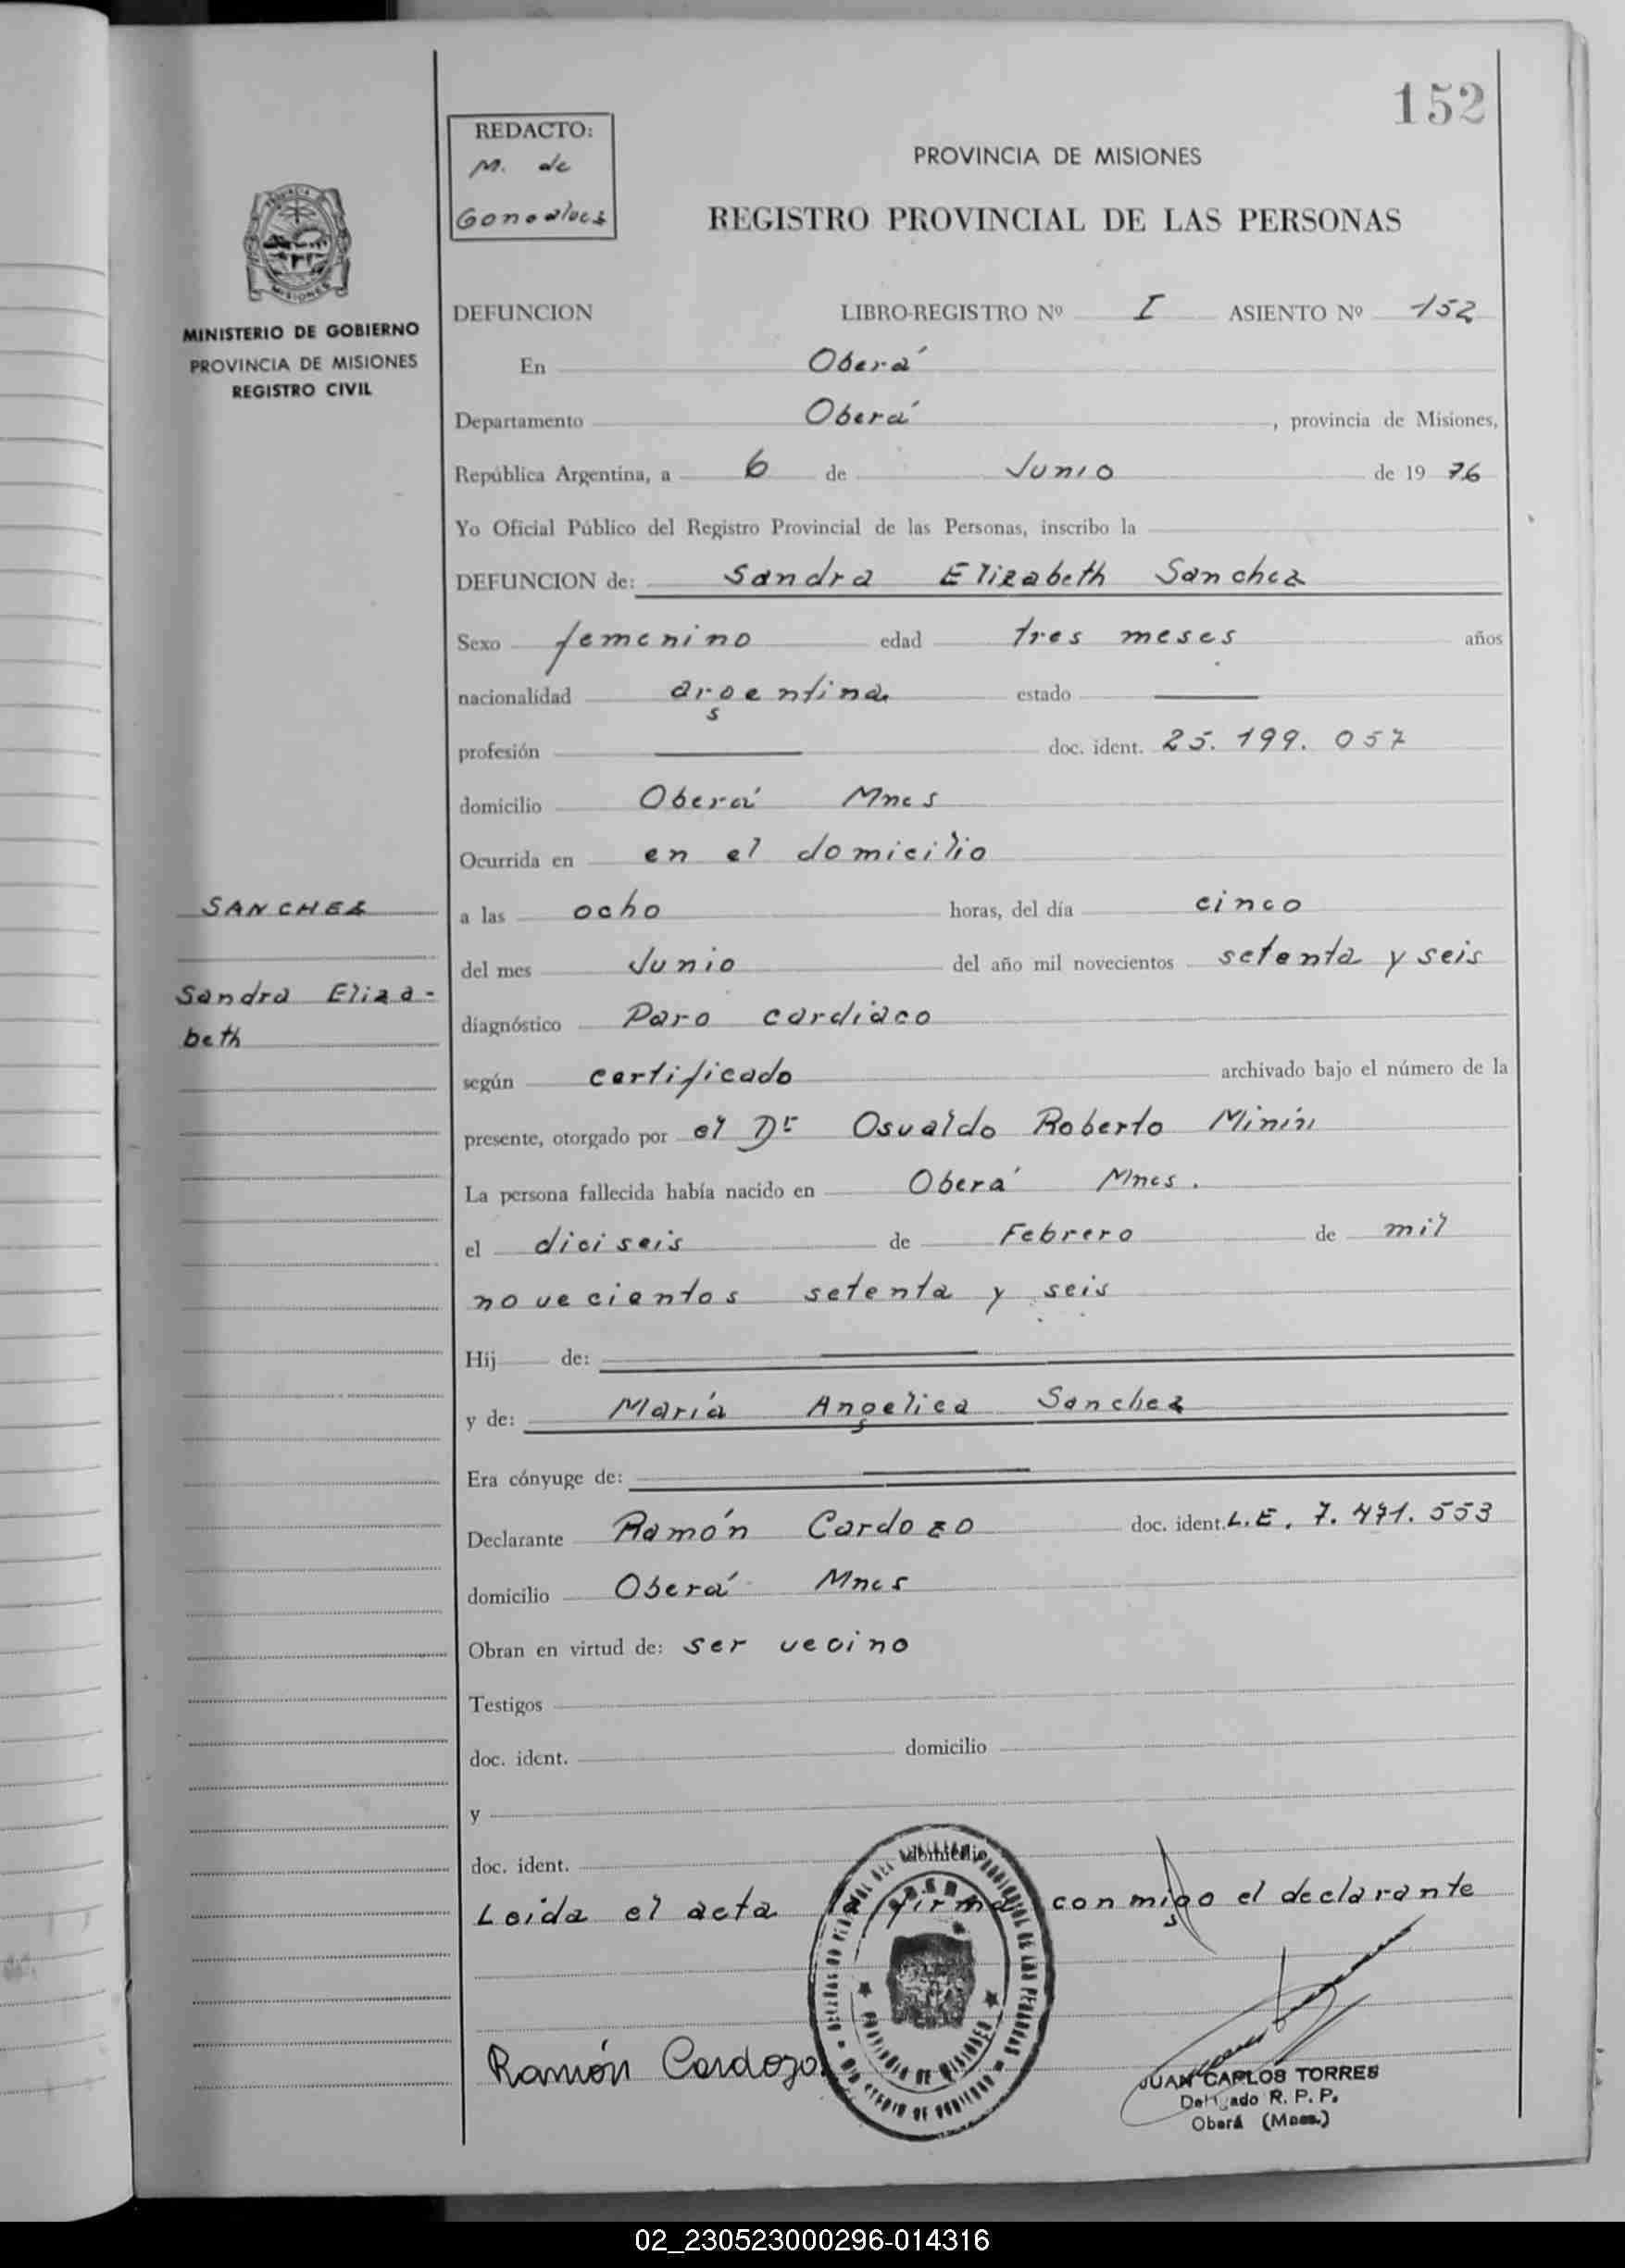 152
REDACTO:
M. de
Gonçalves
PROVINCIA DE MISIONES
REGISTRO PROVINCIAL DE LAS PERSONAS
MISIONES
MINISTERIO DE GOBIERNO
PROVINCIA DE MISIONES
REGISTRO CIVIL
DEFUNCION LIBRO-REGISTRO Nº I ASIENTO Nº 152
En Oberá
Departamento Oberá, provincia de Misiones,
República Argentina, a 6 de Junio de 1976
Yo Oficial Público del Registro Provincial de las Personas, inscribo la
DEFUNCION de: Sandra Elizabeth Sanchez
Sexo femenino edad tres meses años
nacionalidad argentina estado
profesión doc. ident. 25.199.057
domicilio Oberá Mnes
Ocurrida en en el domicilio
SANCHEZ
Sandra Eliza-
beth
a las ocho horas, del día cinco
del mes Junio del año mil novecientos setenta y seis
diagnóstico Paro cardiaco
según certificado archivado bajo el número de la
presente, otorgado por el Dr Osvaldo Roberto
La persona fallecida había nacido en Oberá Mnes.
el diciseis de Febrero de mil
novecientos setenta y seis
Hij de:
y de: María Angelica Sanchez
Era cónyuge de:
Declarante Ramón Cardozo doc. ident. L.E. 7.471.553
domicilio Oberá Mnes
Obran en virtud de: ser vecino
Testigos
doc. ident. domicilio
y
doc. ident. domicilio
Leida el acta la firma conmigo el declarante
PROVINCIA DE MISIONES
Ramón Cardozo
JUAN CARLOS TORRES
Delegado R. P. P.
Oberá (Mnes.)
02_230523000296-014316